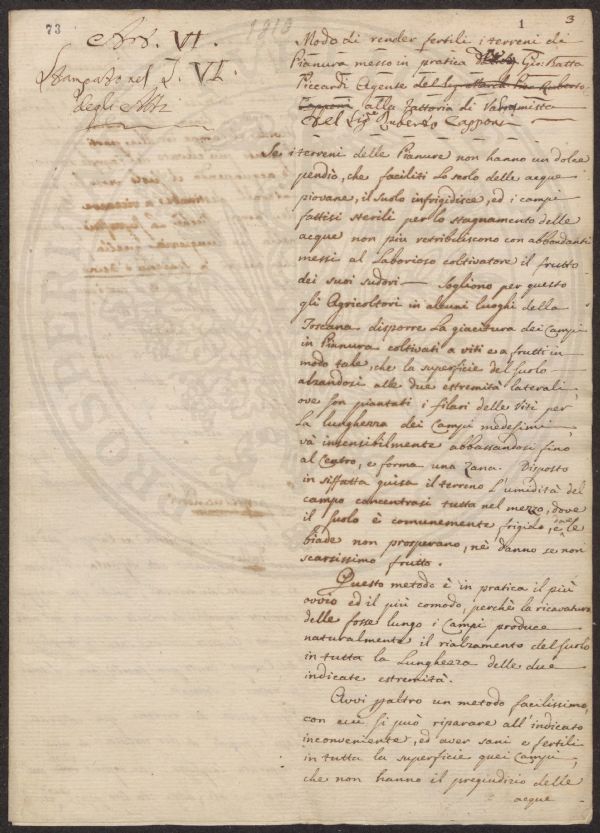 73
1813
1
3
Art. VI.
Stampato nel T. VI.
degli Atti
Modo di render fertili i terreni di
Pianura messo in pratica Gio: Batta
Piccardi Agente del Sig.
alla Fattoria di
del Sig.e Ruberto Capponi
Se i terreni delle Pianure non hanno un dolce
pendio, che faciliti lo scolo delle acque
piovane, il suolo infrigidisce, ed i campi
fattisi sterili per lo stagnamento delle
acque non più retribuiscono con abbondanti
messi al Laborioso coltivatore il frutto
dei suoi sudori — Sogliono per questo
gli Agricoltori in alcuni luoghi della
Toscana disporre la giacitura dei Campi
in Pianura coltivati a viti e a frutti in
modo tale, che la superficie del suolo
alzandosi alle due estremità laterali,
ove son piantati i filari delle Viti per
la lunghezza dei Campi medesimi,
và insensibilmente abbassandosi fino
al Centro, e forma una Zana. Disposto
in siffatta guisa il terreno l'umidità del
campo concentrasi tutta nel mezzo, dove
il suolo è comunemente frigido, e le
biade non prosperano, nè danno se non
scarsissimo frutto.
Questo metodo è in pratica il più
ovvio ed il più comodo, perchè la ricavatura
delle fosse lungo i Campi produce
naturalmente il rialzamento del suolo
in tutta la Lunghezza delle due
indicate estremità.
Avvi un metodo facilissimo,
con cui si può riparare all'indicato
inconveniente, ed aver sani e fertili
in tutta la superficie quei Campi,
che non hanno il pregiudizio delle
acque